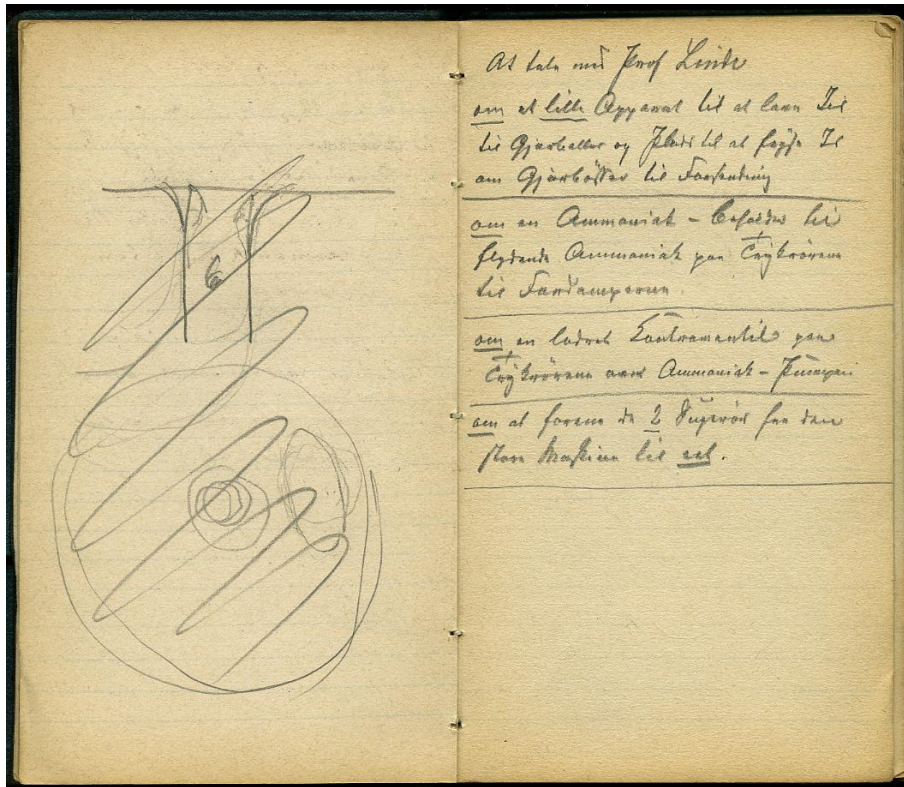 At tale med Prof Linde
om et lille Apparat til at lave Iis
til Gjærkeller og Plads til at fryse Is
om Gjærbøsser til Forsending
om en Ammoniak - Beholder til
flydende Ammoniak paa Trykrörene
til Fordamperne
om en lodret Contraventil paa
Trykrörene ved Ammoniak - Pumpen
om at forene de 2 Sugerör fra den
store Maskine til eet.